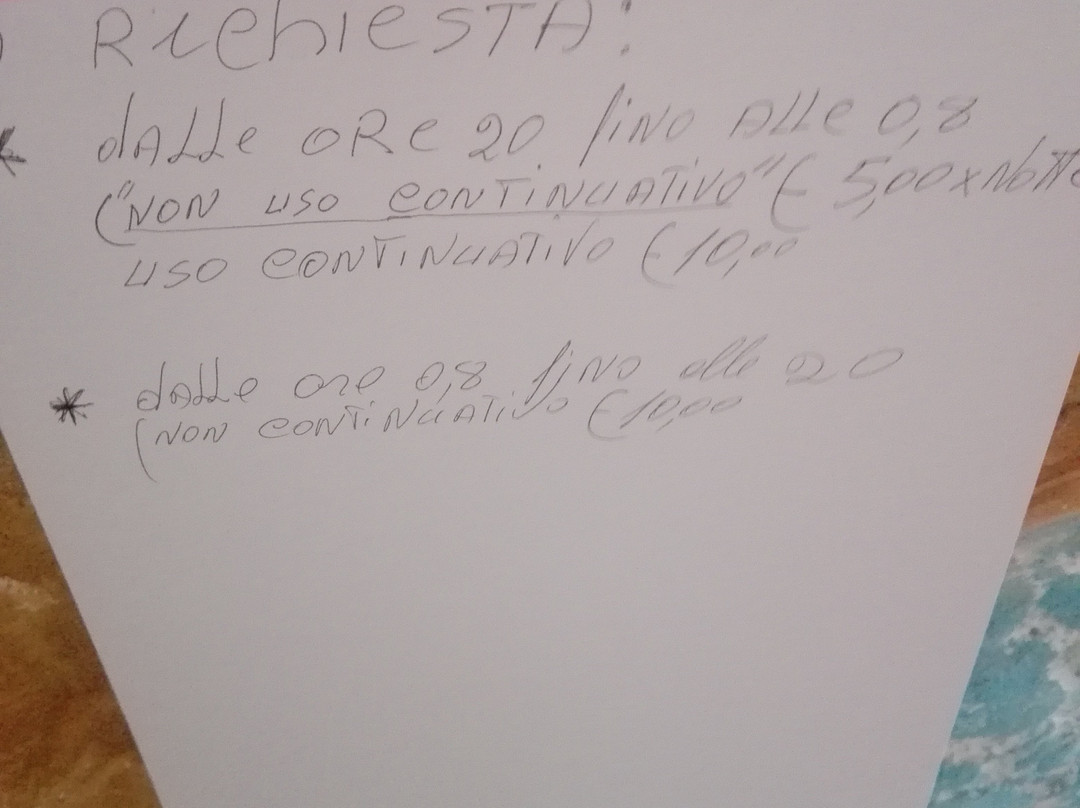 RichiesTA:
* dALLe ORe 20 fino ALLe 0,8
("NON uso CONTINUATIVO" € 5,00 x NOTTe
uso CONTINUATIVO € 10,00
* dALLe ore 0,8 fino alle 20
(NON CONTINUATIVO € 10,00